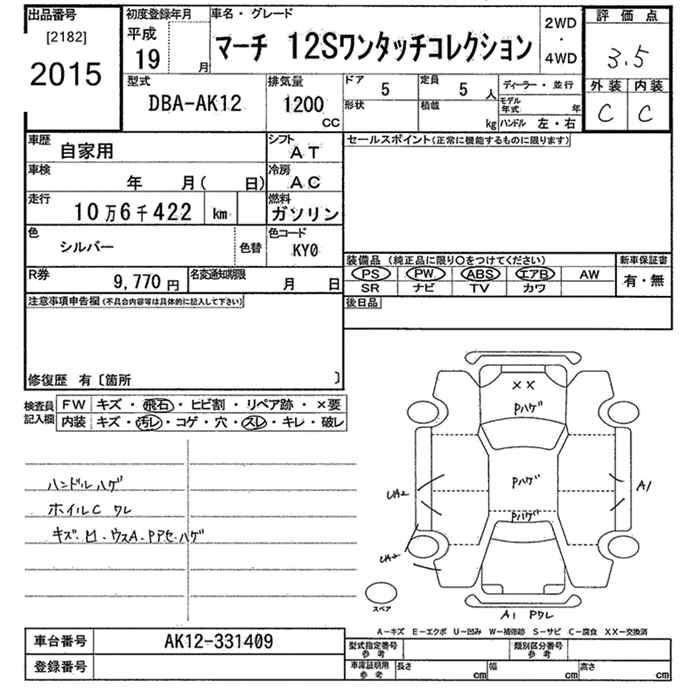 出品番号 初度登録年月 車名・グレード 2WD・4WD 評価点
[2182] 平成 19 月 マーチ 12Sワンタッチコレクション 3.5
2015
型式 排気量 ドア 5 定員 5 人 ディーラー・並行 外装 内装
DBA-AK12 1200 CC 形状 積載 kg モデル年式 年 C C
ハンドル 左・右
車歴 自家用 シフト AT セールスポイント(正常に機能するものに限ります)
車検 年 月( 日) 冷房 AC
走行 10万6千422 km 燃料 ガソリン
色 シルバー 色替 色コード KY0
装備品 (純正品に限り○をつけてください) 新車保証書
R券 9,770円 名変通知期限 月 日 PS PW ABS エアB AW 有・無
SR ナビ TV カワ
注意事項申告欄(不具合内容等は具体的に記入して下さい) 後日品
修復歴 有〔箇所 〕
検査員記入欄 FW キズ・飛石・ヒビ割・リペア跡・×要
内装 キズ・汚レ・コゲ・穴・スレ・キレ・破レ
ハンドルハゲ
ホイルC ワレ
キズ・凹・ウスA・Pアセ・ハゲ
××
Pハゲ
Pハゲ
Pハゲ
UA2
A1
UA2
スペア
A1 Pワレ
A-キズ E-エクボ U-凹み W-補修跡 S-サビ C-腐食 XX-交換済
車台番号 AK12-331409 型式指定番号 参考 類別区分番号 参考
登録番号 車庫証明用 参考 長さ cm 幅 cm 高さ cm